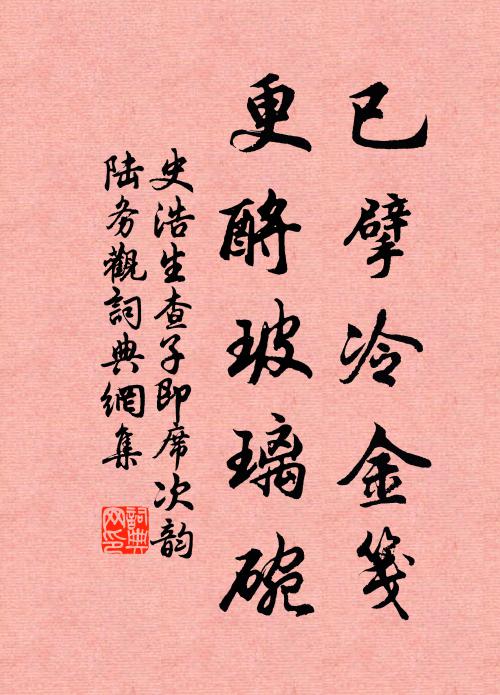 已擘冷金箋
更酹玻璃碗
史浩生查子即席次韵
陸務觀詞典網集
詞典网印